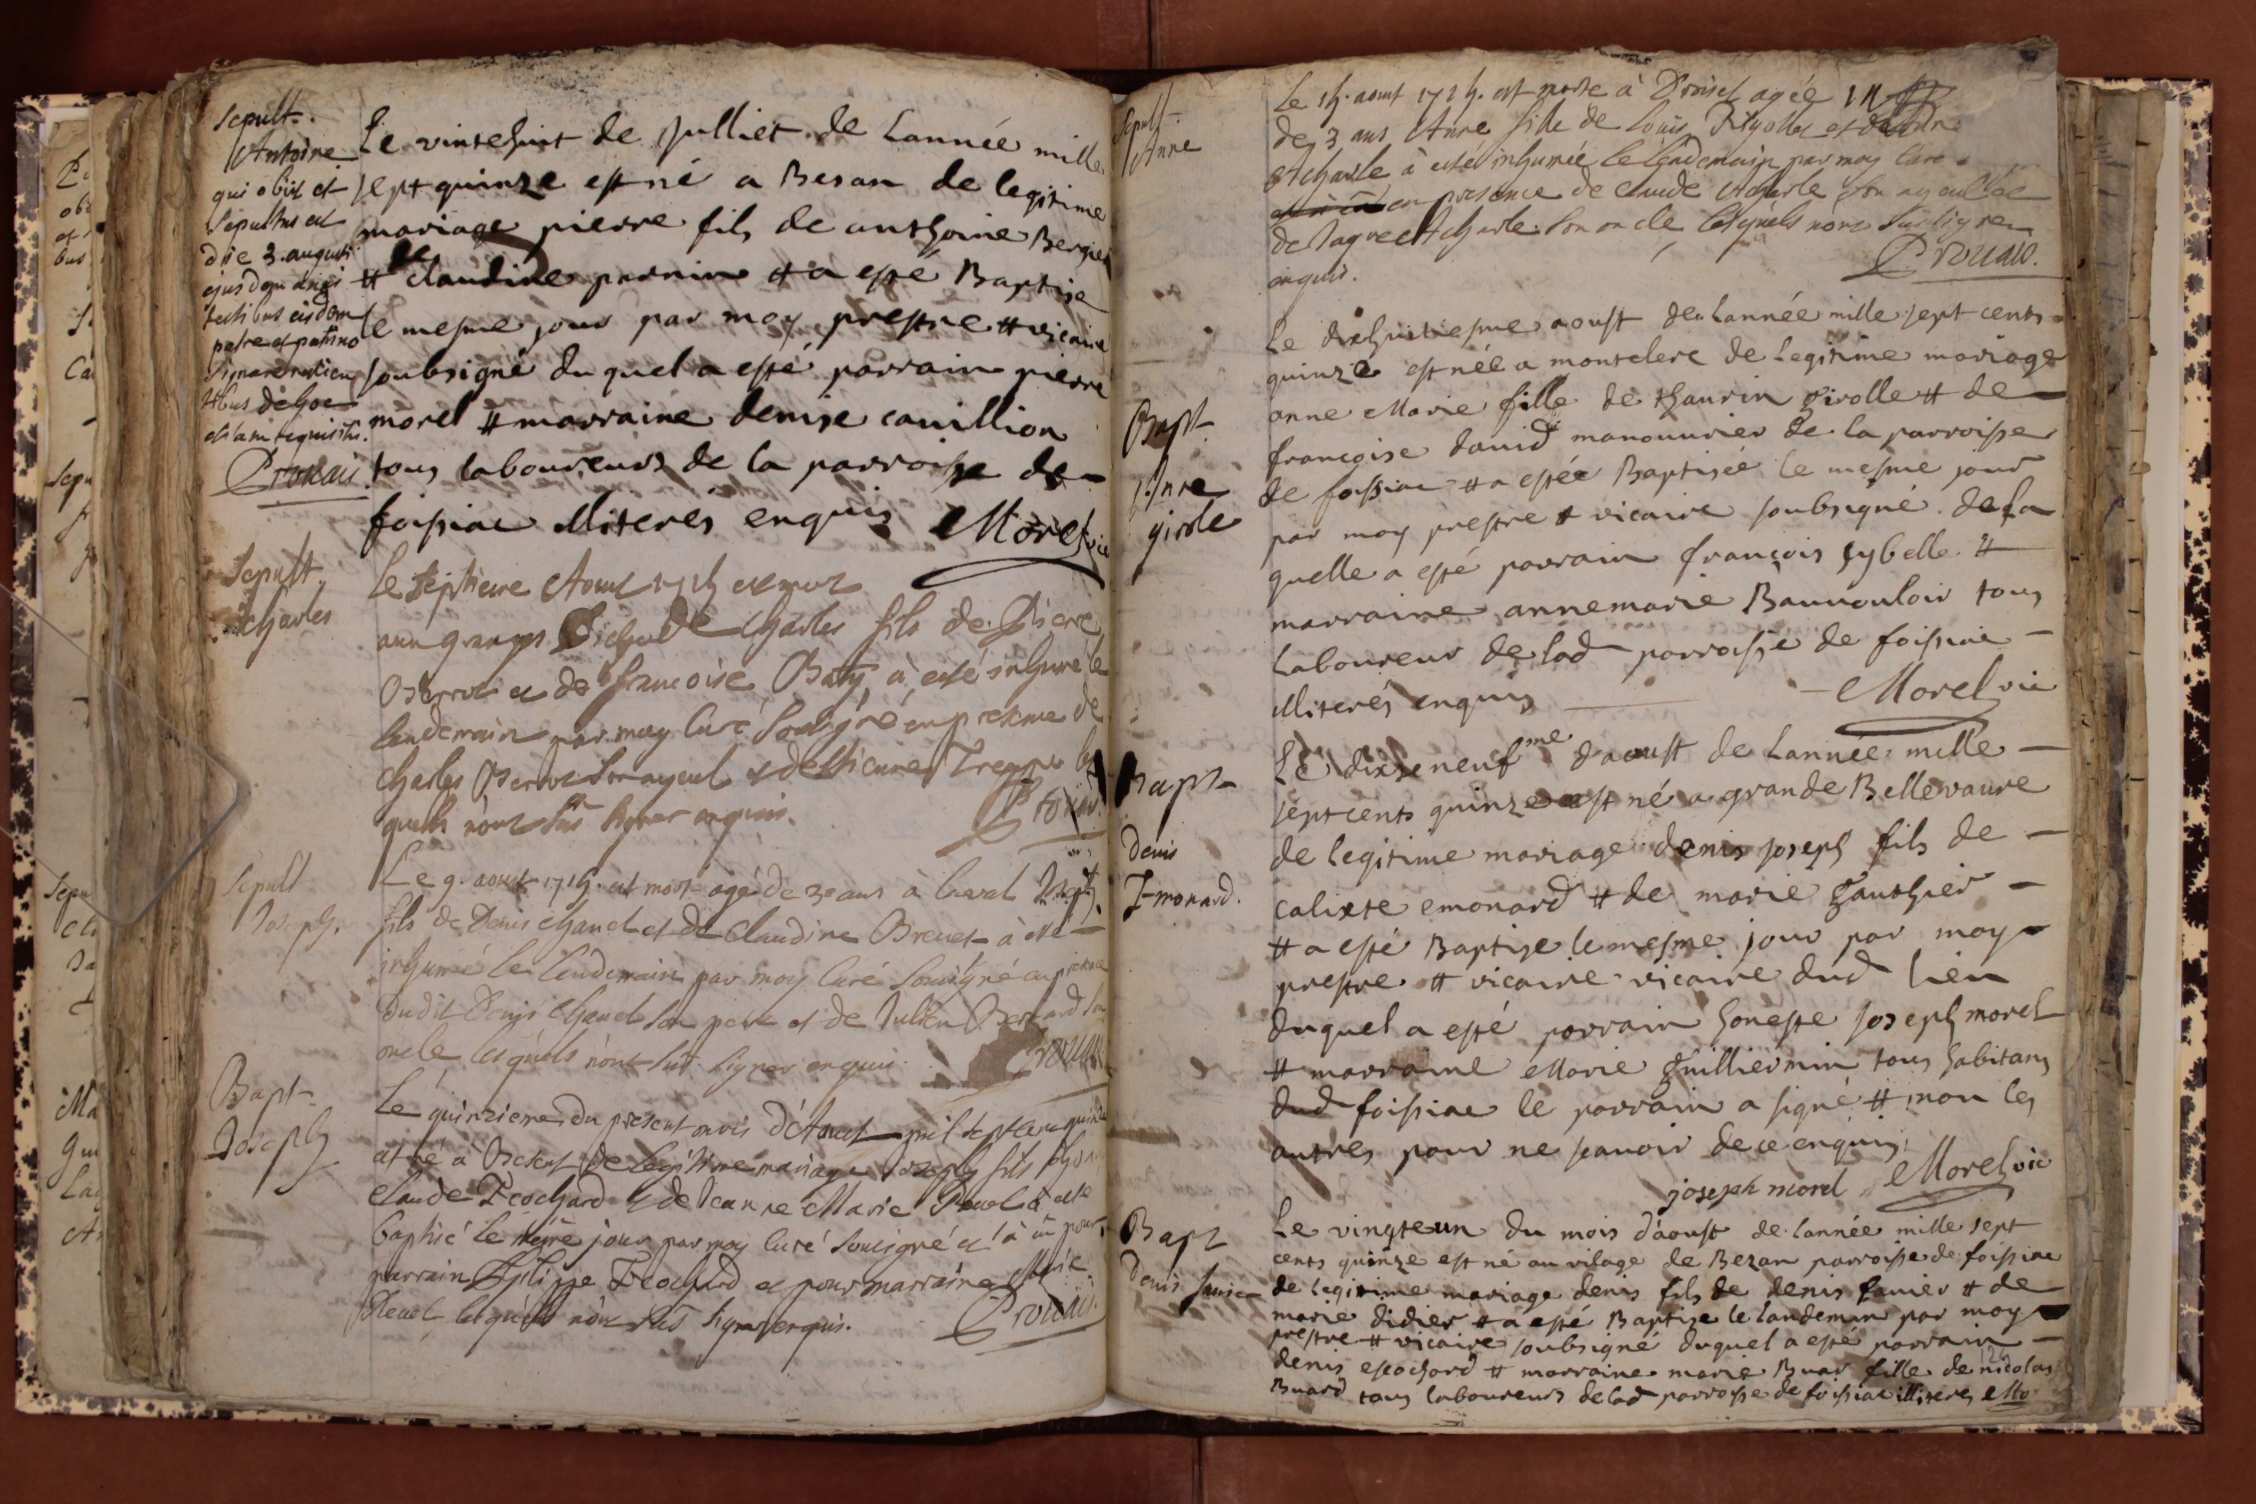 Sepult.
Antoine
qui obiit et
sepultus est
die 3. augusti
ejusdem anni
testibus eisdem
patre et patrino
signare
de hoc
etiam requisiti.
Prouais
Le vintehuit de Julliet de Lannée mille
sept quinze est né a Besan de legitime
mariage pierre fils de anthoine Bergier
et de claudine pernin et a esté Baptise
le mesme jour par moy prestre et vicaire
soubsigné duquel a esté parrain pierre
morel et marraine denise cauillion
tous laboureurs de la parroisse de
foissiac illiterés enquis Morel vic
Sepult.
Charles
Le septieme Aoust 1715 est mort
aux granges Charles fils de Pierre
et de francoise Baty, à esté inhumé le
lendemain par moy Curé soussigné en presence de
Charles son ayeul et d'Etienne
quels n'ont sus signer enquis. Prouais
Sepult
Joseph.
Le 9. aoust 1715. est mort aggé de 3 ans à Laval Joseph
fils de Denis Chanel et de Claudine Breuet à esté
inhumé le Lendemain par moy Curé soussigné en presence
dudit Denis Chanel son pere et de Julien son
oncle lesquels n'ont sus signer enquis. Prouais
Bapt
Joseph
Le quinzieme du present mois d'Aoust mil sept cent quinze
est né à de legitime mariage Joseph fils
Claude Ecochard et de Jeanne Marie à esté
baptisé le même jour par moy Curé soussigné et à eu pour
parrain Philippe Ecochard et pour marraine Marie
lesquels n'ont sus signer enquis. Prouais
Sepult.
Anne
Le 15. aoust 1715. est morte à Droisel agée
de 3 ans Anne fille de Louis et
Acharle à esté inhumée le lendemain par moy Curé
en presence de Claude Acharle son ayeul et
de Acharle son oncle lesquels n'ont sus signer
enquis. Prouais.
Bapt
Anne
girole
Le dixhuitiesme aoust de Lannée mille sept cents
quinze est née a montclerc de legitime mariage
anne Marie fille de thaurin girolle et de
françoise dauid manouurier de la parroisse
de foissiac et a estée Baptisée le mesme jour
par moy prestre et vicaire soubsigné de la
quelle a esté parrain françois sybelle et
marraine annemarie Bauuouloir tous
Laboureur de lad parroisse de foissiac
illiterés enquis Morel vic
Bapt
Denis
Emonard.
Le dixseneufme d'aoust de Lannée mille
sept cents quinze est né a grande Bellevaure
de legitime mariage denis joseph fils de
calixte emonard et de marie gauthier
et a esté Baptise le mesme jour par moy
prestre et vicaire vicaire dud lieu
duquel a esté parrain honeste joseph morel
et marraine Marie guilliermin tous habitans
dud foissiac le parrain a signé et non les
autres pour ne sçauoir de ce enquis
joseph morel Morel vic
Bapt
Denis
Le vingteun du mois d'aoust de lannée mille sept
cents quinze est né au vilage de Bezan parroisse de foissiac
de legitime mariage denis fils de denis et de
marie didier et a esté Baptise le landemain par moy
prestre et vicaire soubsigné duquel a esté parrain
denis escochard et marraine marie Buar fille de nicolas
Buard tous laboureurs de lad parroisse de foissiac illiterés Mo